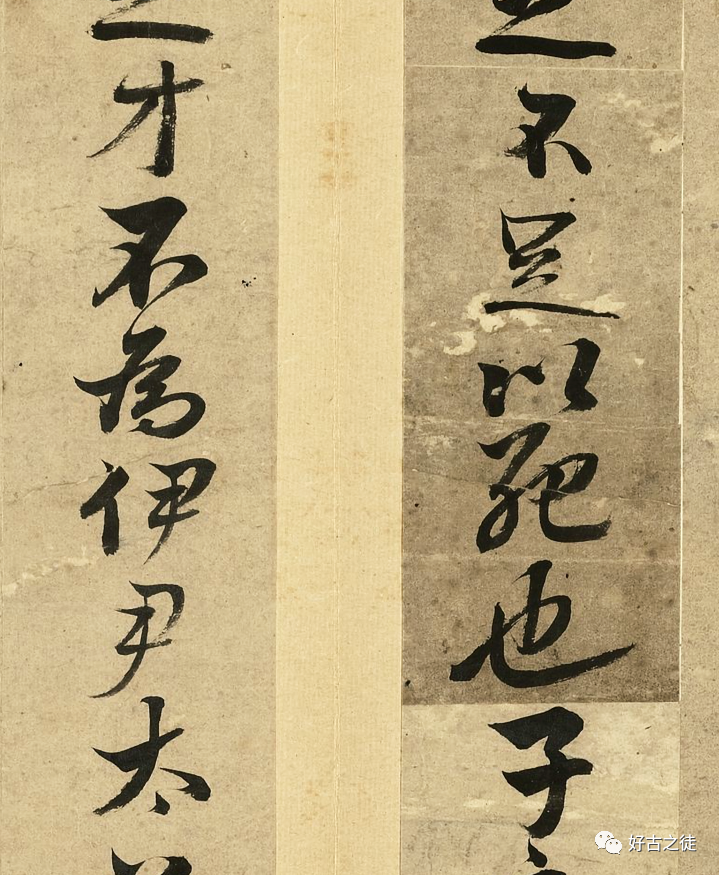 之不足以死也子
之才不為伊尹太
好古之徒